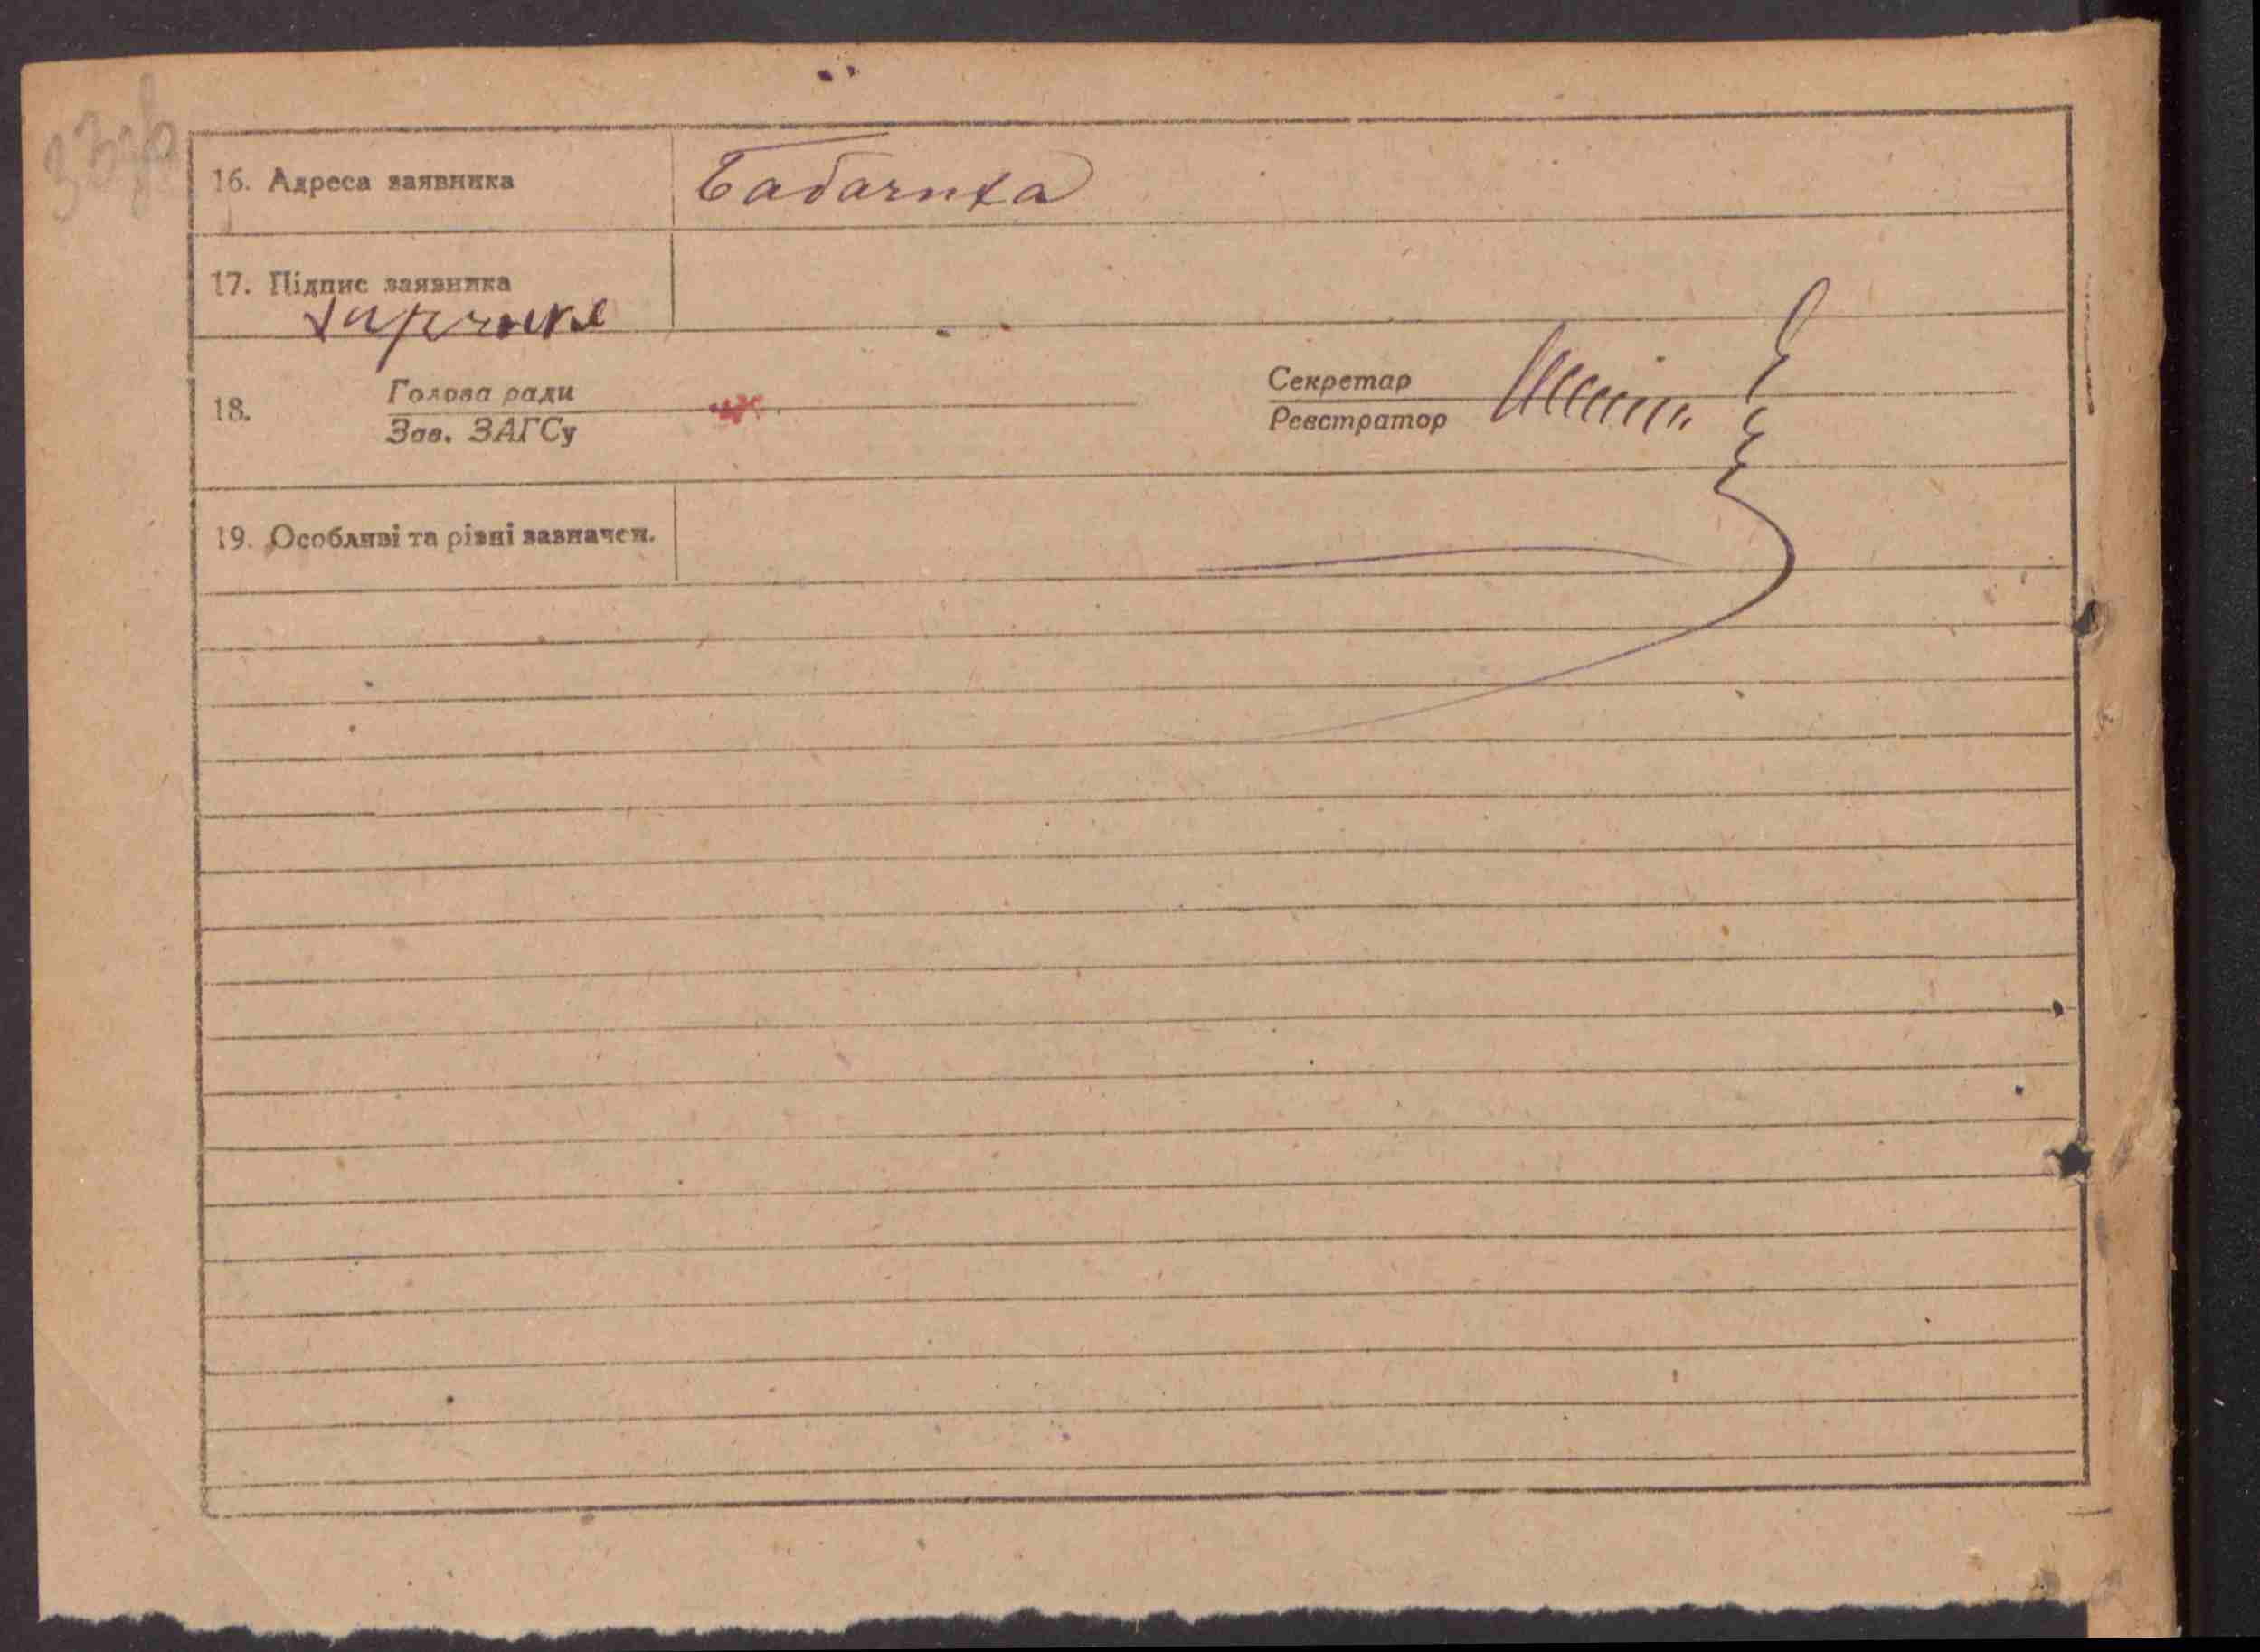 16. Адреса заявника Бабачиха
17. Підпис заявника
18. Голова ради
Зав. ЗАГСу
Секретар
Реєстратор
19. Особливі та різні зазначен.